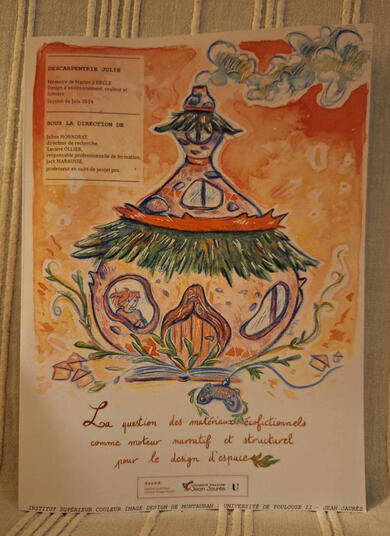 DESCARPENTRIE JULIE
Mémoire de Master 2 DECLE
Design d'environnement, couleur et
lumière
Session de juin 2024
SOUS LA DIRECTION DE
directeur de recherche,
responsable professionnelle de formation,
professeur en suivi de projet pro.
La question des matériaux écofictionnels
comme moteur narratif et structurel
pour le design d'espace
Jean Jaurès
U
INSTITUT SUPÉRIEUR COULEUR IMAGE DESIGN DE MONTAUBAN | UNIVERSITÉ DE TOULOUSE II - JEAN JAURÈS